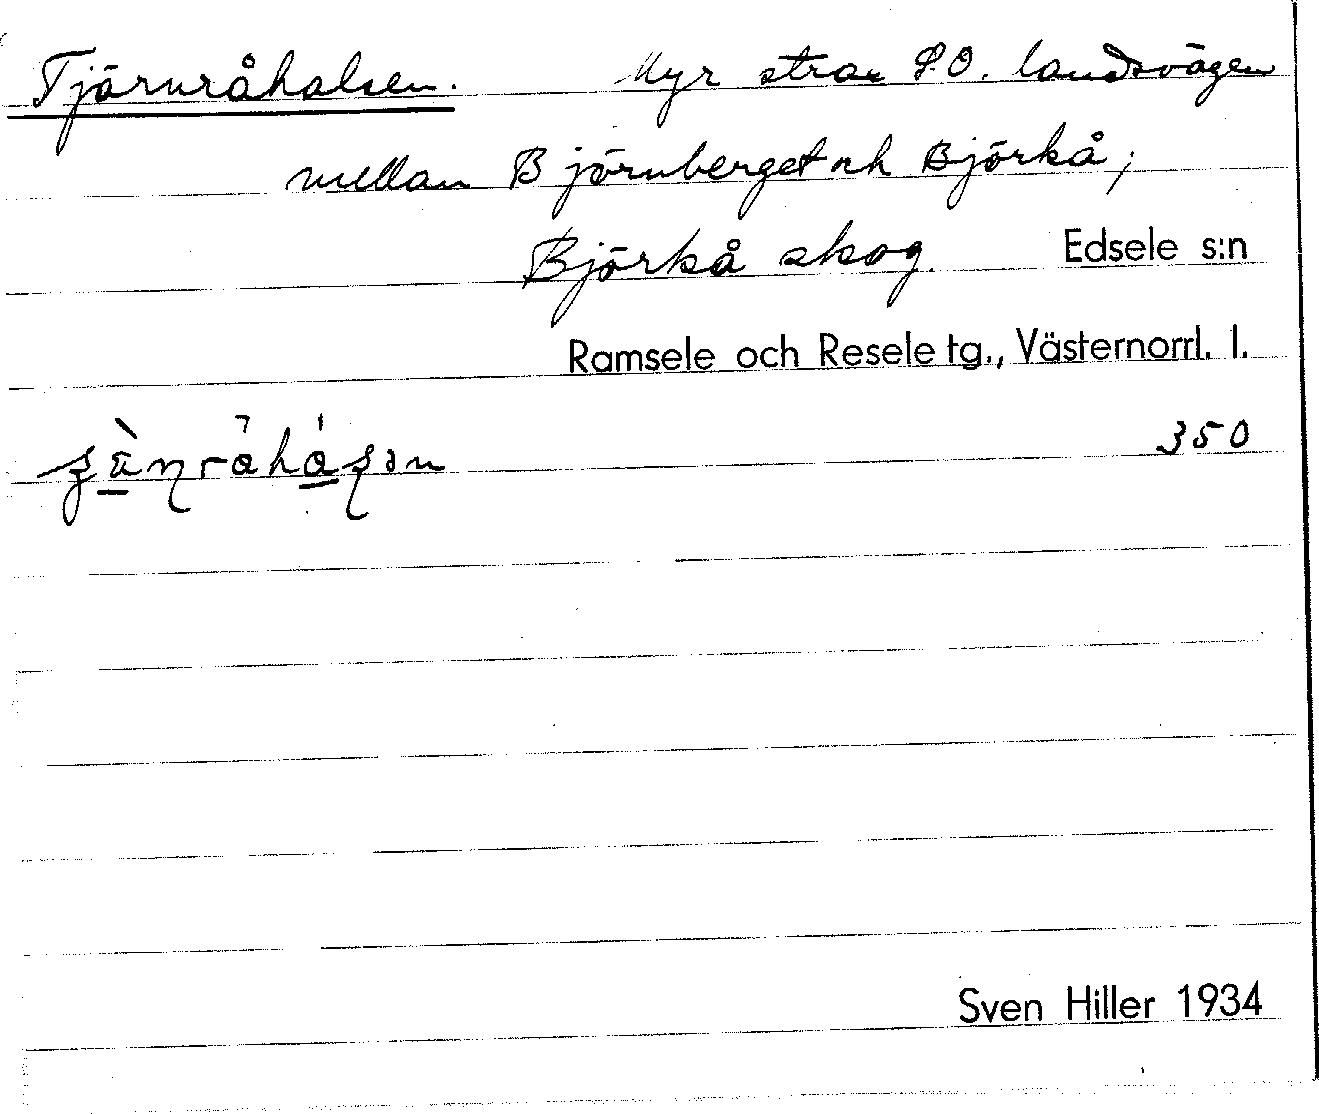 Tjärnråhalsen. Myr strax S.O. landsvägen
mellan Björnberget och Björkå;
Björkå skog. Edsele s:n
Ramsele och Resele tg., Västernorrl. l.
350
Sven Hiller 1934